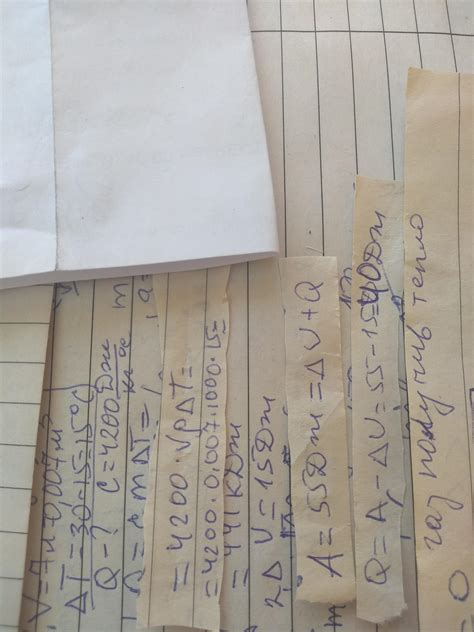 V=7л=0,007м³
ΔT=30-15=15°C
Q-? C=4200 Дж/кг °C
m ΔT=
=4200·VρΔT=
=4200·0,007·1000·15=
=441кДж
2. ΔU=15Дж
A=55Дж=ΔU+Q
Q=A-ΔU=55-15=40Дж
газ получив тепло